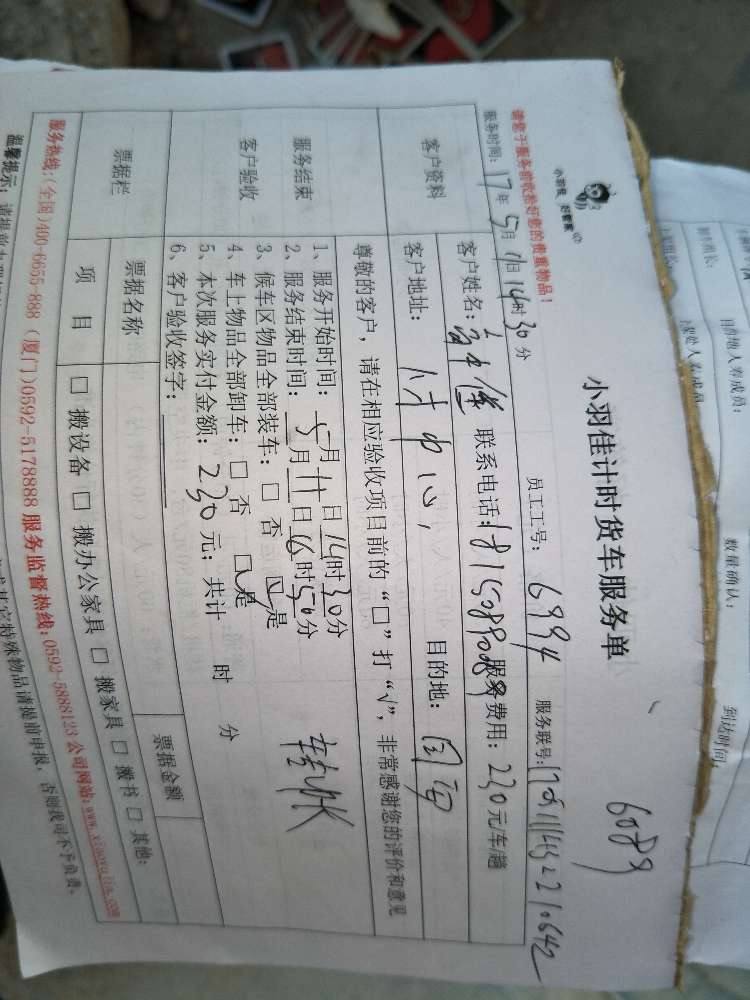 小羽佳 好管家
小羽佳计时货车服务单
6089
请您于服务前收捡好您的贵重物品!
服务时间: 17年5月11日14时30分 员工工号: 6994 服务联号:
客户资料
客户姓名: 联系电话: 服务费用: 230元/车/趟
客户地址: 付中心, 目的地: 同安
尊敬的客户，请在相应验收项目前的“□”打“√”，非常感谢您的评价和意见
服务结束
客户验收
1、服务开始时间: 5月11日14时30分
2、服务结束时间: 月 日16时50分
3、候车区物品全部装车: □ 否 ☑是
4、车上物品全部卸车: □ 否 ☑是
5、本次服务实付金额: 230元; 共计 时 分
6、客户验收签字:
票据栏
票据名称 票据金额
项 目 □ 搬设备 □ 搬办公家具 □ 搬家具 □ 搬书 □ 其他:
服务热线:(全国)400-6655-888 (厦门)0592-5178888 服务监督热线:0592-5888123 公司网站:www.xiaoyujia.com
温馨提示:
其它特殊物品请提前申报，否则我司不予负责。
目的地人寿成员:
数量确认:
到达时间: